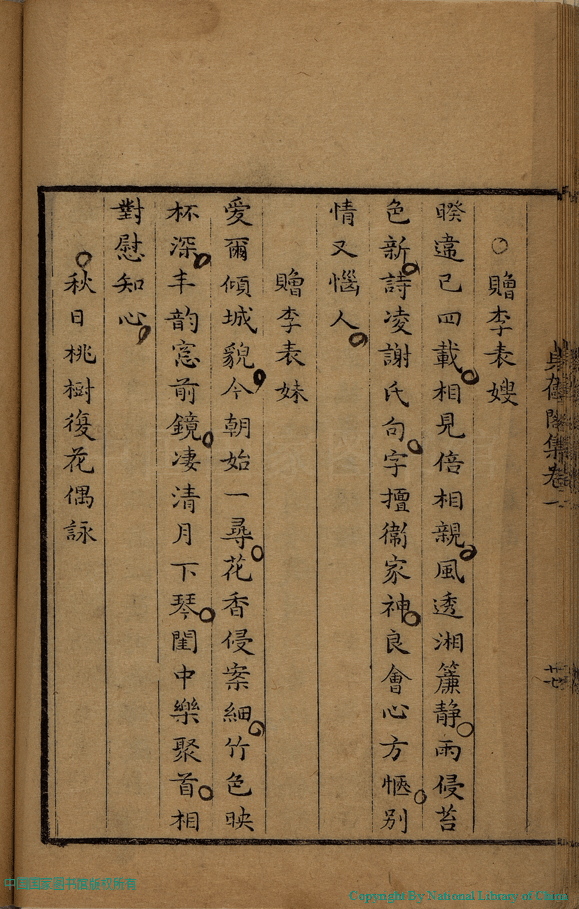 ○贈李表嫂
睽違已四載相見倍相親風透湘簾靜雨侵苔
色新詩凌謝氏句字擅衞家神良會心方愜別
情又惱人
贈李表妹
愛爾傾城貌今朝始一尋花香侵案細竹色映
杯深丰韵窓前鏡凄清月下琴閨中樂聚首相
對慰知心
秋日桃樹復花偶詠
集卷一
中国国家图书馆版权所有
Copyright By National Library of China